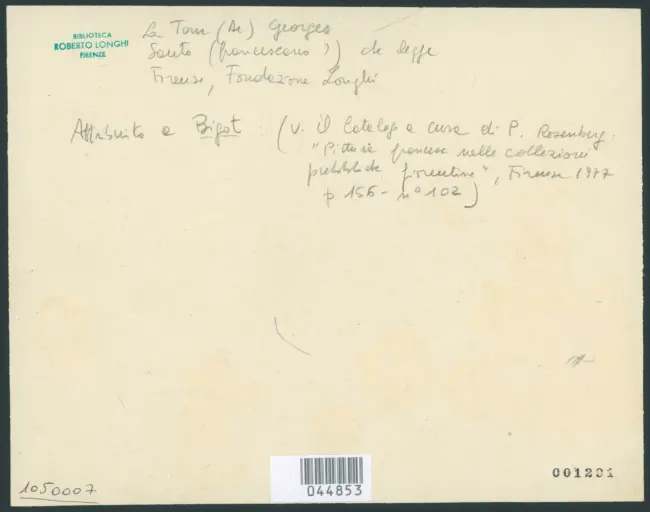 BIBLIOTECA
ROBERTO LONGHI
FIRENZE
La Tour (de) Georges
Santo (francescano?) che legge
Firenze, Fondazione Longhi
Attribuito a Bigot (v. il Catalogo a cura di P. Rosenberg.
"Pittura francese nelle collezioni
pubbliche fiorentine", Firenze 1977
p 156 - n° 102)
1050007
044853
001291